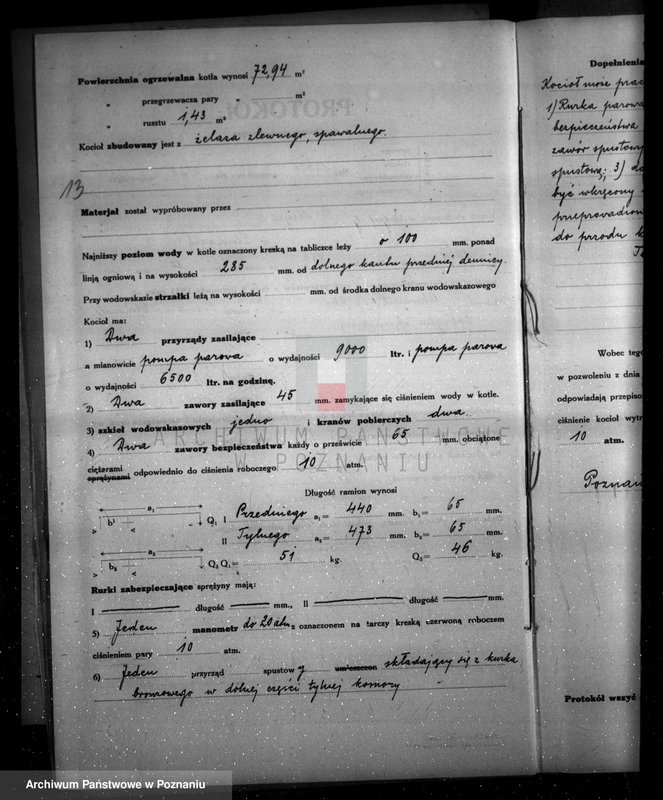 Powierzchnia ogrzewalna kotła wynosi 72,94 m²
„ przegrzewacza pary m²
„ rusztu 1,43 m²
Kocioł zbudowany jest z żelaza zlewnego, spawalnego.
13
Materjał został wypróbowany przez
Najniższy poziom wody w kotle oznaczony kreską na tabliczce leży o 100 mm. ponad
linją ogniową i na wysokości 285 mm. od dolnego kantu przedniej dennicy.
Przy wodowskazie strzałki leżą na wysokości mm. od środka dolnego kranu wodowskazowego
Kocioł ma:
1) Dwa przyrządy zasilające
a mianowicie pompa parowa o wydajności 9000 ltr. i pompa parowa
o wydajności 6500 ltr. na godzinę.
2) Dwa zawory zasilające 45 mm. zamykające się ciśnieniem wody w kotle.
3) szkieł wodowskazowych jedno i kranów pobierczych dwa.
4) Dwa zawory bezpieczeństwa każdy o prześwicie 65 mm. obciążone
ciężarami
sprężynami odpowiednio do ciśnienia roboczego 10 atm.
Długość ramion wynosi
a₁ b¹ Q₁ I Przedniego a₁= 440 mm. b₁= 65 mm.
II Tylnego a₂= 473 mm. b₂= 65 mm.
a₂ b₂ Q₂ Q₁= 51 kg. Q₂= 46 kg.
Rurki zabezpieczające sprężyny mają:
I długość mm., II długość mm.
5) Jeden manometr do 20 atm z oznaczonem na tarczy kreską czerwoną roboczem
ciśnieniem pary 10 atm.
6) Jeden przyrząd spustowy umieszczon składający się z kurka
bronzowego w dolnej części tylnej komory.
Dopełnienia
Kocioł może prac
1) Rurka parowa
bezpieczeństwa
zawór spustowy
spustową; 3) do
być wkręcony
przeprowadzon
do przodu k
Wobec tego
w pozwoleniu z dnia
odpowiadają przepiso
ciśnienie kocioł wytr
10 atm.
Poznań
Protokół wszyć
ARCHIWUM PAŃSTWOWE
W POZNANIU
Archiwum Państwowe w Poznaniu